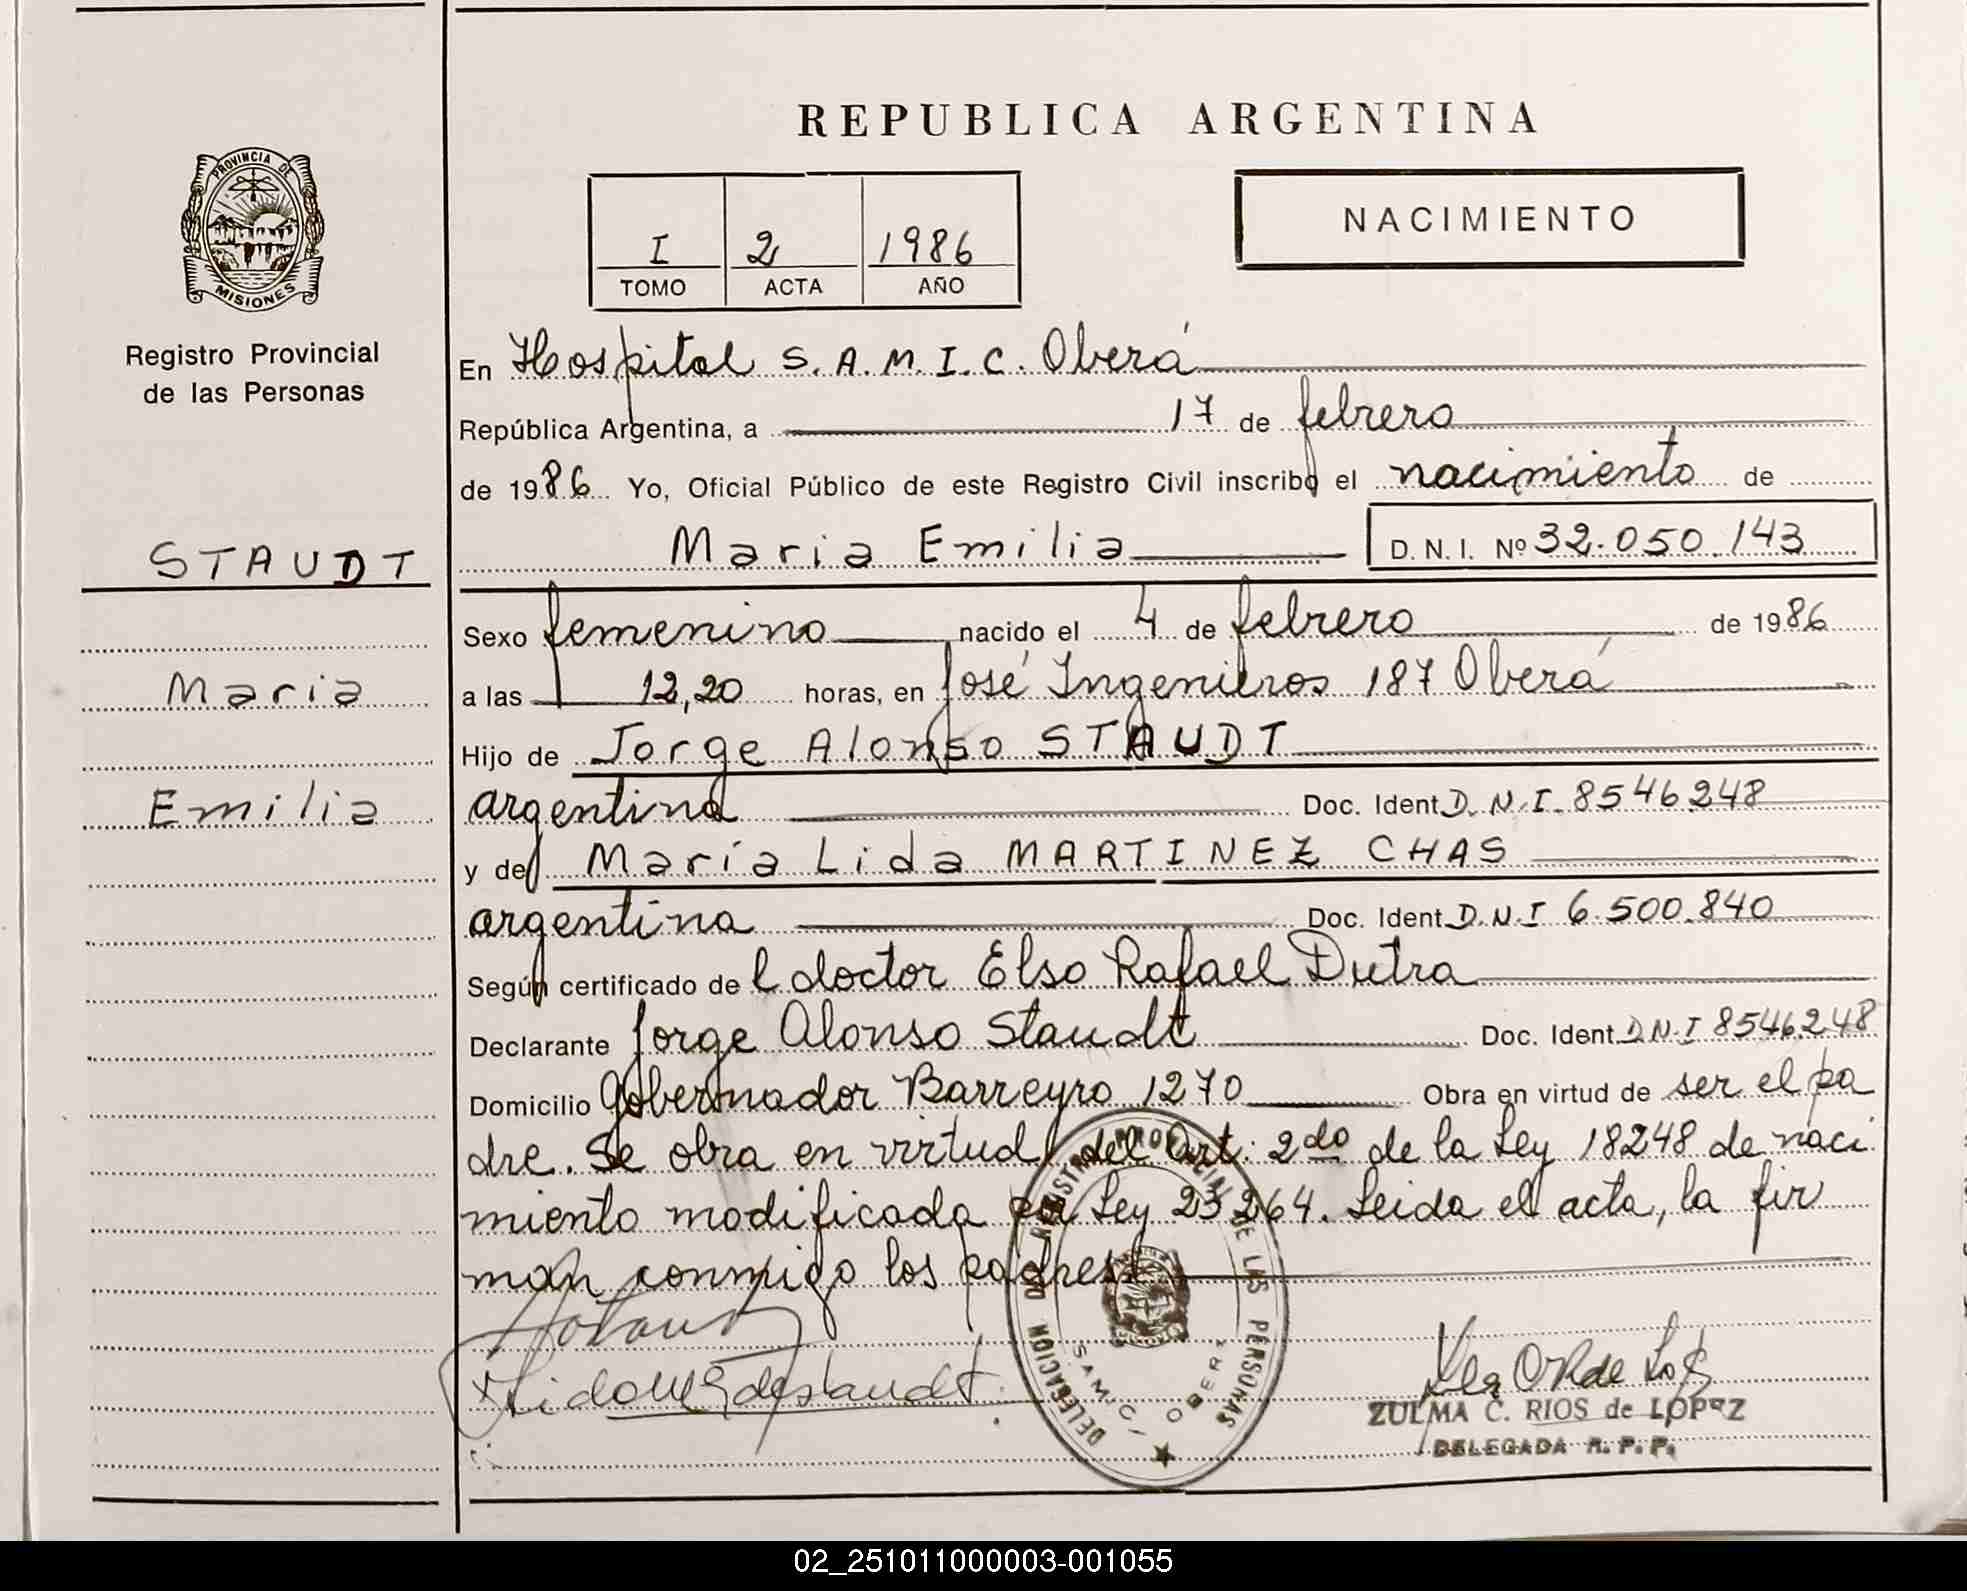 REPUBLICA ARGENTINA
PROVINCIA DE
MISIONES
Registro Provincial
de las Personas
I 2 1986
TOMO ACTA AÑO
NACIMIENTO
STAUDT
Maria
Emilia
En Hospital S.A.M.I.C. Oberá
República Argentina, a 17 de febrero
de 1986 Yo, Oficial Público de este Registro Civil inscribo el nacimiento de
Maria Emilia D.N.I. Nº 32.050.143
Sexo femenino nacido el 4 de febrero de 1986
a las 12,20 horas, en José Ingenieros 187 Oberá
Hijo de Jorge Alonso STAUDT
argentina Doc. Ident. D.N.I. 8546248
y de María Lida MARTINEZ CHAS
argentina Doc. Ident. D.N.I 6.500.840
Según certificado de l doctor Elso Rafael Dutra
Declarante Jorge Alonso Staudt Doc. Ident. D.N.I 8546.248
Domicilio Gobernador Barreyro 1270 Obra en virtud de ser el pa
dre. Se obra en virtud del Art: 2do de la Ley 18248 de naci
miento modificada por Ley 23264. Leida el acta, la fir
man conmigo los padres
DELEGACION DEL REGISTRO PROVINCIAL DE LAS PERSONAS
S.A.M.I.C. OBERA
ZULMA C. RIOS de LOPEZ
DELEGADA R.P.P.
02_251011000003-001055